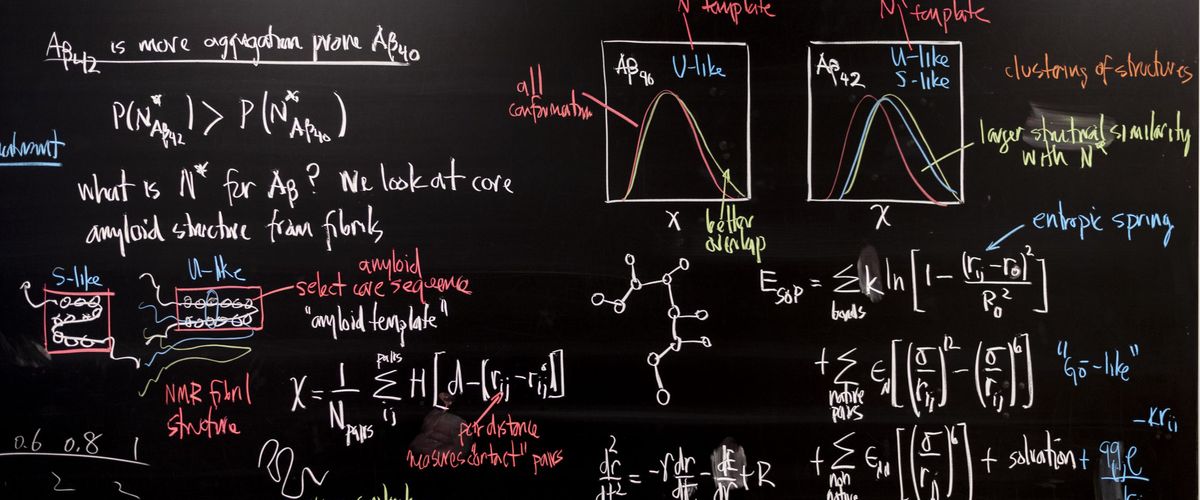 Aβ42 is more aggregation prone Aβ40
P(N*Aβ42) > P(N*Aβ40)
what is N* for Aβ? We look at core
amyloid structure from fibrils
S-like
U-like
amyloid
select core sequence
"amyloid template"
NMR fibril
structure
χ = 1/Npairs Σ pairs ij H[d-(rij-rij°)]
pair distance
measures "contact" pairs
0.6 0.8 1
2 2
N* template
N* template
all
conformation
Aβ40 U-like
X
better
overlap
Aβ42 U-like
S-like
χ
clustering of structures
larger structural similarity
with N*
entropic spring
ESOP = Σ bonds k ln [1 - (rij-r0)²/R0²]
+ Σ native pairs εN [(σ/rij)^12 - (σ/rij)^6] "Gō-like"
+ Σ non native εNN [(σ/rij)^6] + solvation + qiqj e^-κrij
d²r/dt² = -γ dr/dt - dE/dr + R